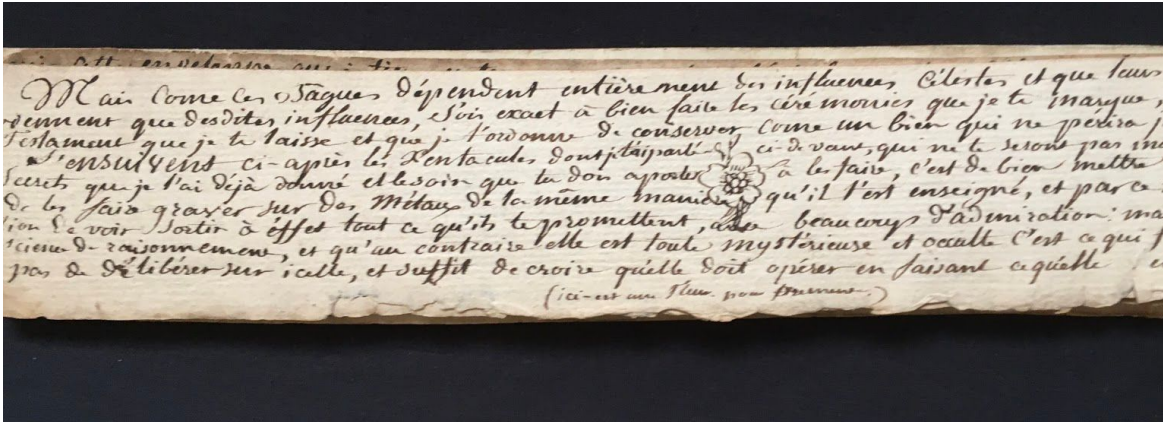 Mais Come ces Bagues dépendent entièrement des influences Célestes et que leurs
que desdites influences, Sois exact à bien faire les ceremonies que je te marque,
Testament que je te laisse et que je t'ordonne de conserver Come un bien qui ne perira
S'ensuivent ci-après les Pentacules dont je t'ai parlé ci-devant, qui ne te seront pas
Secrets que je t'ai déjà donné et le soin que tu dois aporter à les faire, c'est de bien mettre
de les faire graver sur des Métaux de la même maniere qu'il t'est enseigné, et par ce
de voir Sortir à effet tout ce qu'ils te promettent, beaucoup d'admiration:
de raisonnement, et qu'au contraire elle est toute mystérieuse et occulte C'est ce qui
pas de délibérer sur icelle, et suffit de croire qu'elle doit opérer en faisant ce qu'elle
(ici-est une fleur pour